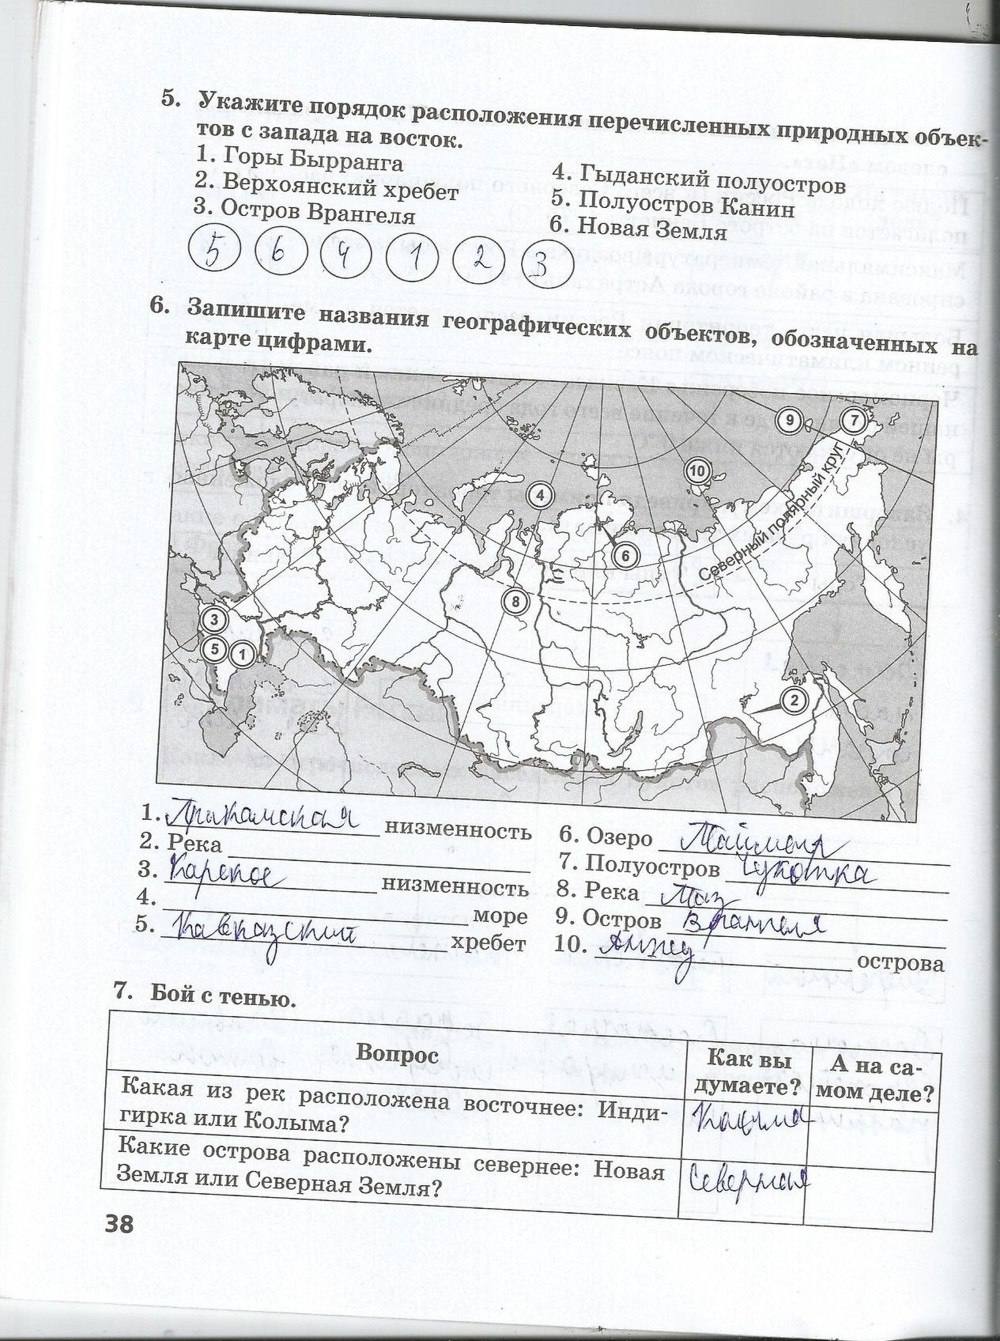 5. Укажите порядок расположения перечисленных природных объек-
тов с запада на восток.
1. Горы Бырранга
2. Верхоянский хребет
3. Остров Врангеля
4. Гыданский полуостров
5. Полуостров Канин
6. Новая Земля
5 6 4 1 2 3
6. Запишите названия географических объектов, обозначенных на
карте цифрами.
9 7
10
4
Северный полярный круг
6
8
3
5 1
2
1. Прикамская низменность
2. Река
3. Карское низменность
4. море
5. Кавказский хребет
6. Озеро Таймыр
7. Полуостров Чукотка
8. Река Таз
9. Остров Врангеля
10. Анжу острова
7. Бой с тенью.
Вопрос
Как вы
думаете?
А на са-
мом деле?
Какая из рек расположена восточнее: Инди-
гирка или Колыма?
Колыма
Какие острова расположены севернее: Новая
Земля или Северная Земля?
Северная
38